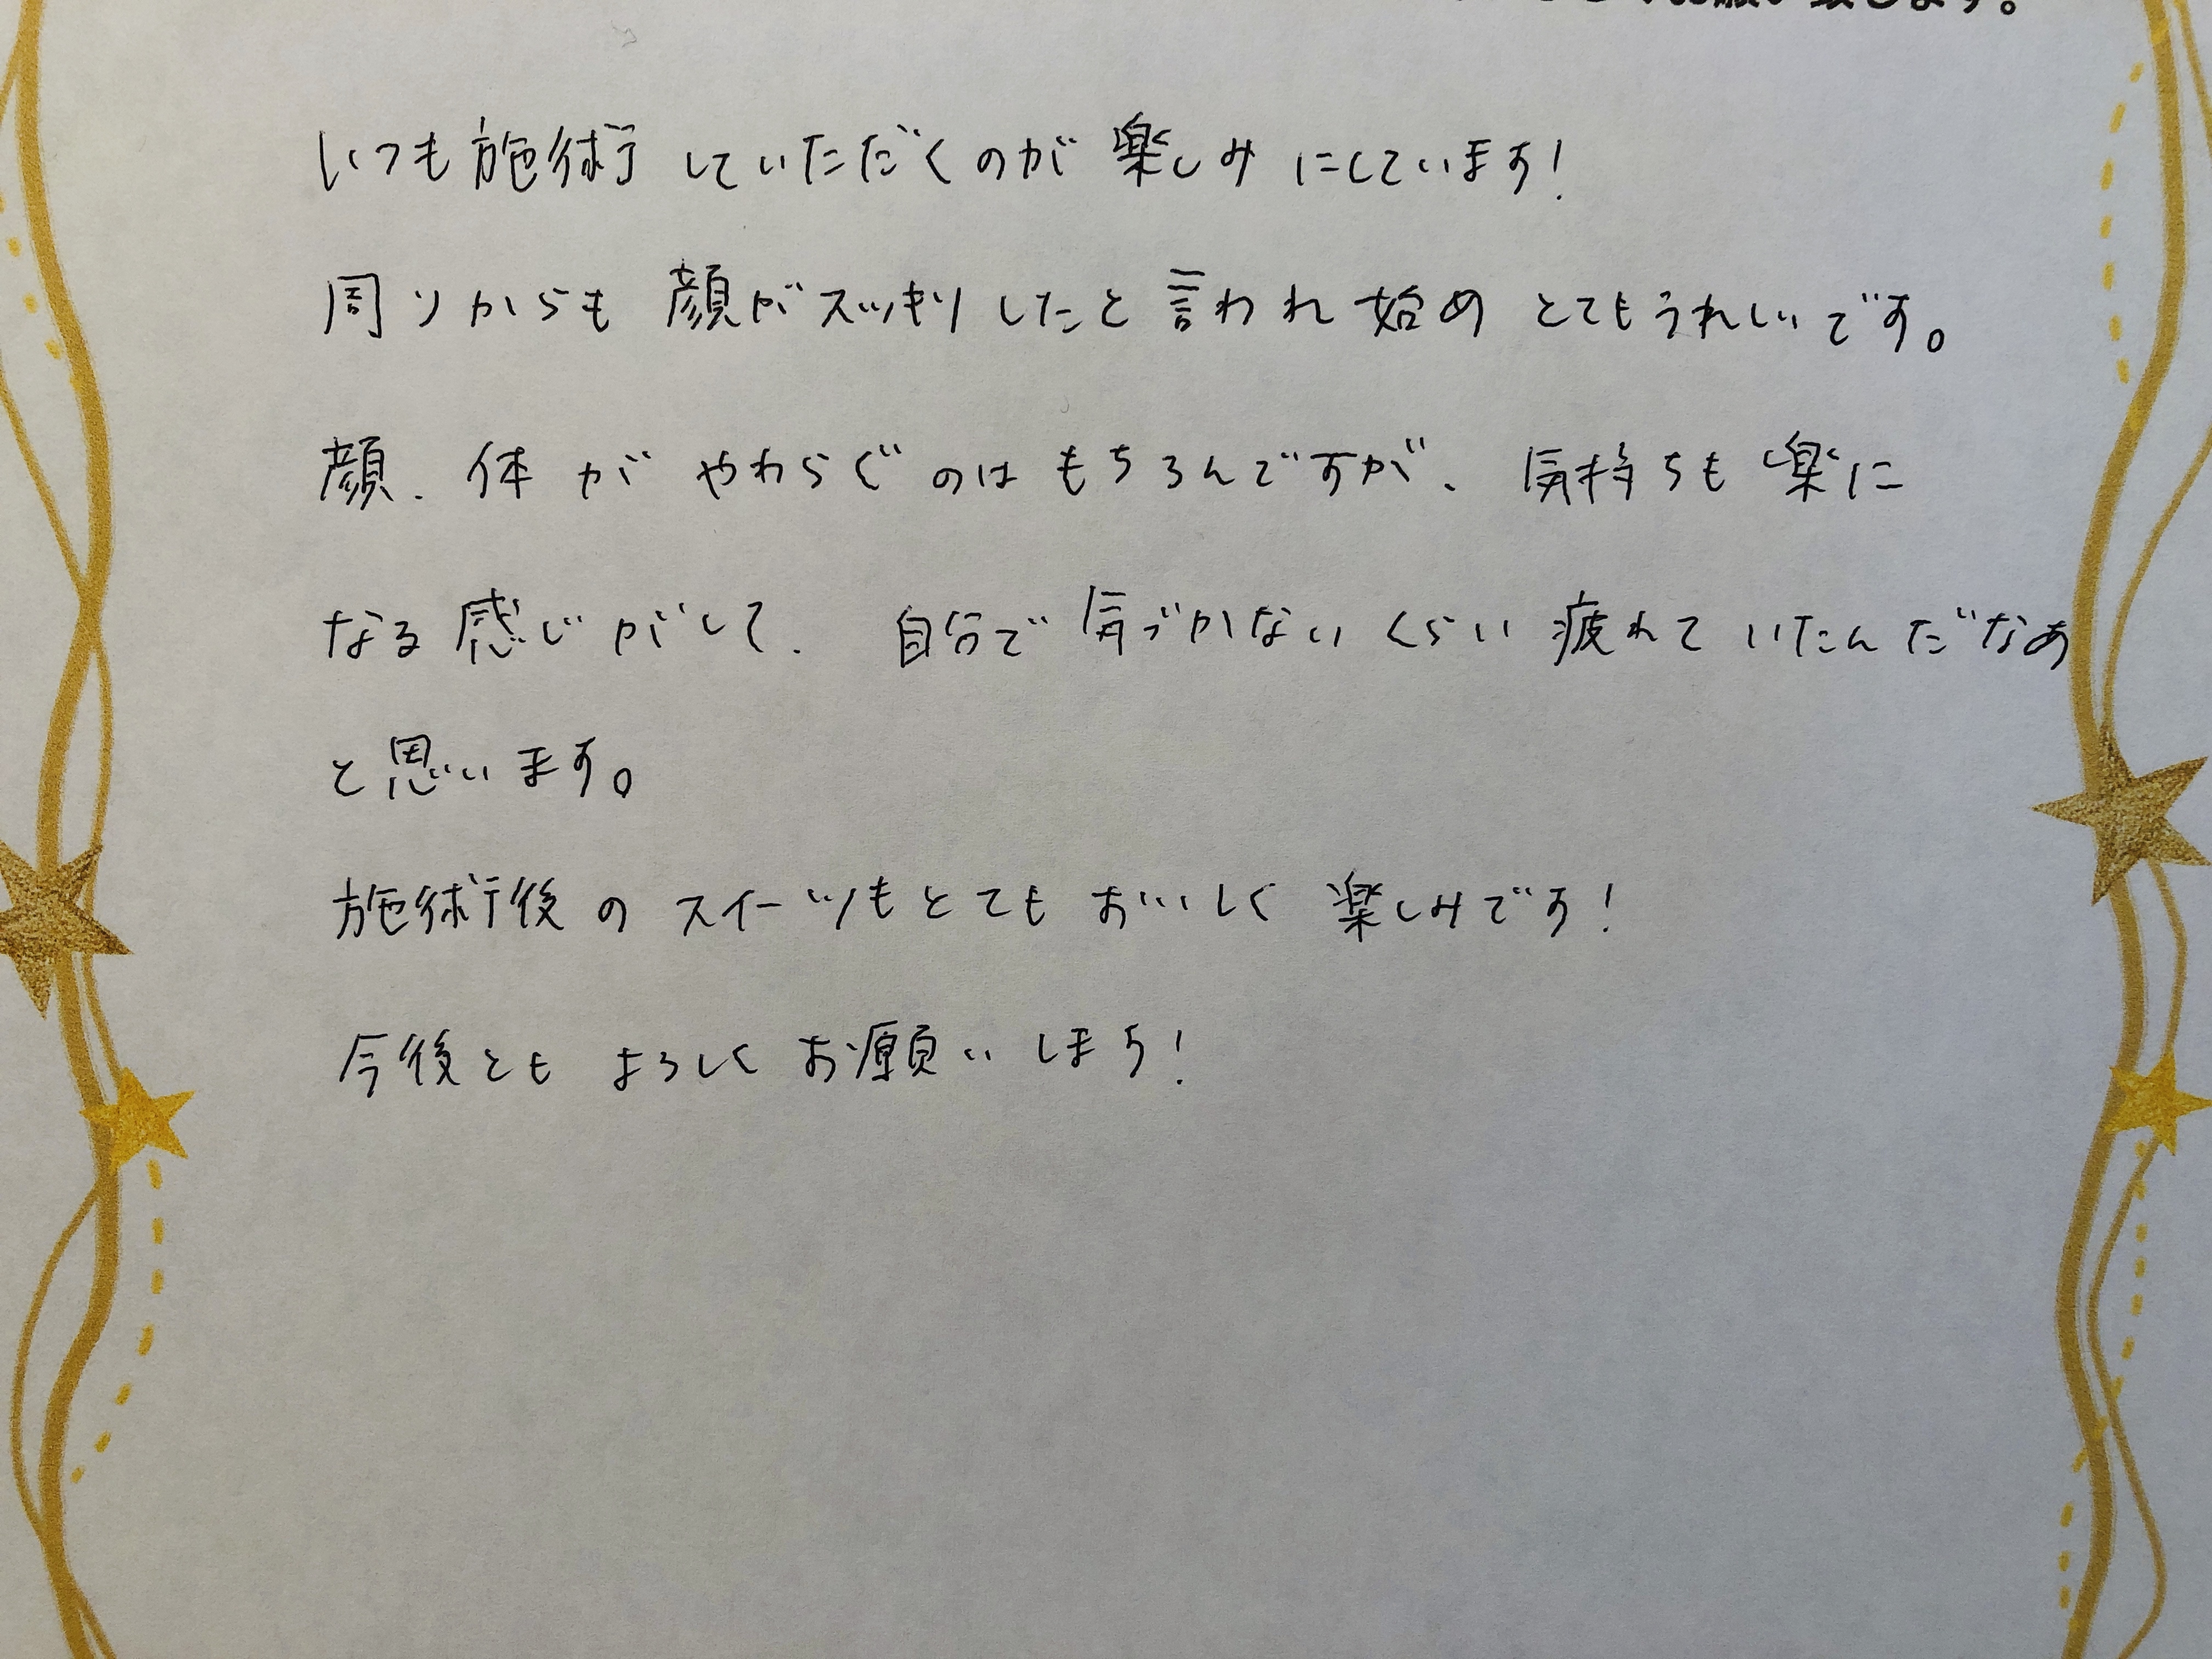 お願い致します。
いつも施術していただくのが楽しみにしています!
周りからも顔がスッキリしたと言われ始めとてもうれしいです。
顔、体がやわらぐのはもちろんですが、気持ちも楽に
なる感じがして、自分で気づかないくらい疲れていたんだなあ
と思います。
施術後のスイーツもとてもおいしく楽しみです!
今後ともよろしくお願いします!